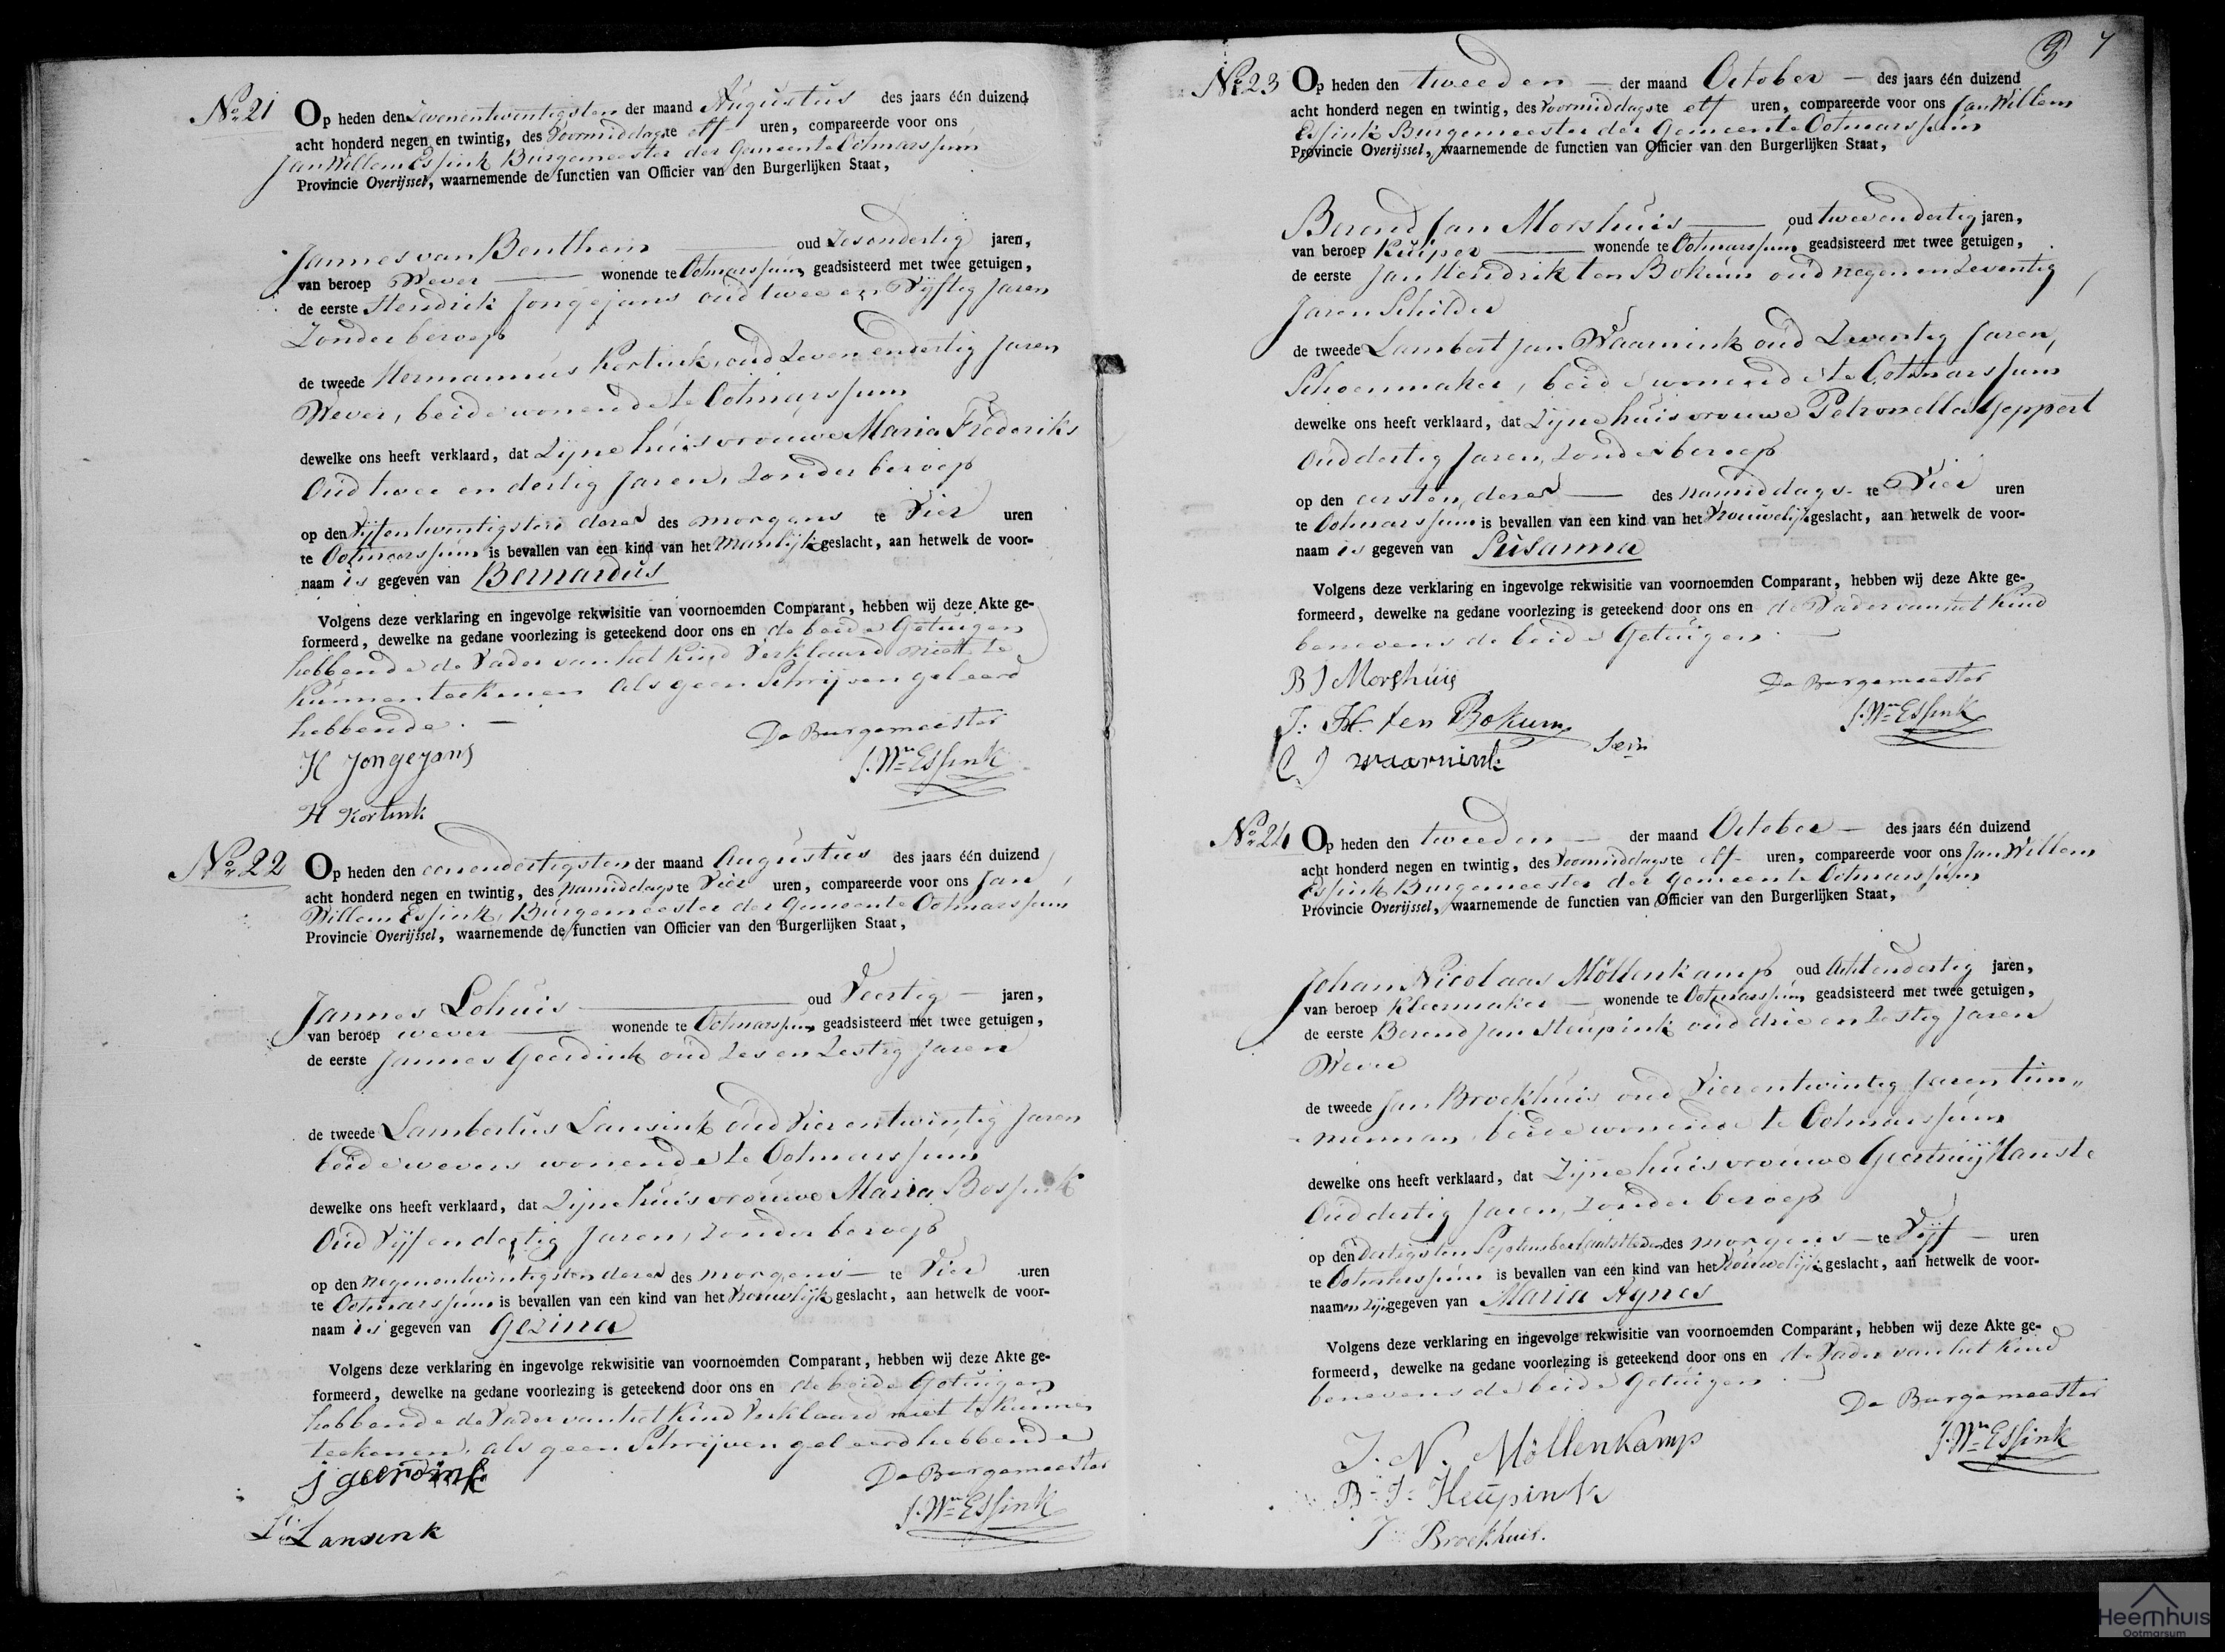 No 21 Op heden den Zevenentwintigsten der maand Augustus des jaars één duizend
acht honderd negen en twintig, des Voormiddags te elf uren, compareerde voor ons
Jan Willem Essink Burgemeester der Gemeente Ootmarssum
Provincie Overijssel, waarnemende de functien van Officier van den Burgerlijken Staat,
Jannes van Benthem oud Zesendertig jaren,
van beroep Wever wonende te Ootmarssum geadsisteerd met twee getuigen,
de eerste Hendrik Jongejans oud twee en Vijftig Jaren
Zonder beroep
de tweede Hermannus Kortink, oud Zeven endertig Jaren
Wever, beide wonende te Ootmarssum
dewelke ons heeft verklaard, dat Zijne huisvrouwe Maria Frederiks
Oud twee en dertig Jaren, Zonder beroep
op den Vijfentwintigsten dezer des morgens te Vier uren
te Ootmarssum is bevallen van een kind van het Manlijk geslacht, aan hetwelk de voor-
naam is gegeven van Bernardus
Volgens deze verklaring en ingevolge rekwisitie van voornoemden Comparant, hebben wij deze Akte ge-
formeerd, dewelke na gedane voorlezing is geteekend door ons en de beide Getuigen
hebbende de Vader van het Kind Verklaard niet te
Kunnen teekenen als geen Schrijven geleerd
hebbende. —
De Burgemeester
H Jongejans
J. Wm Essink
H Kortink
No 22 Op heden den eenendertigsten der maand Augustus des jaars één duizend
acht honderd negen en twintig, des Namiddags te Vier uren, compareerde voor ons Jan
Willem Essink, Burgemeester der Gemeente Ootmarssum
Provincie Overijssel, waarnemende de functien van Officier van den Burgerlijken Staat,
Jannes Lohuis oud Veertig jaren,
van beroep wever wonende te Ootmarssum geadsisteerd met twee getuigen,
de eerste Jannes Geerdink oud Zes en Zestig Jaren
de tweede Lambertus Lansink oud Vierentwintig Jaren
beide wevers wonende te Ootmarssum
dewelke ons heeft verklaard, dat Zijne huisvrouwe Maria Bossink
Oud Vijf en dertig Jaren, Zonder beroep
op den Negenentwintigsten dezer des morgens te Vier uren
te Ootmarssum is bevallen van een kind van het Vrouwlijk geslacht, aan hetwelk de voor-
naam is gegeven van Gezina
Volgens deze verklaring en ingevolge rekwisitie van voornoemden Comparant, hebben wij deze Akte ge-
formeerd, dewelke na gedane voorlezing is geteekend door ons en de beide Getuigen
hebbende de Vader van het Kind Verklaard niet te Kunnen
teekenen, als geen Schrijven geleerd hebbende
De Burgemeester
J geerdink
J. Wm Essink
L: Lansink
7
No 23 Op heden den tweeden der maand October des jaars één duizend
acht honderd negen en twintig, des Voormiddags te elf uren, compareerde voor ons Jan Willem
Essink Burgemeester der Gemeente Ootmarssum
Provincie Overijssel, waarnemende de functien van Officier van den Burgerlijken Staat,
Berend Jan Morshuis oud twee en dertig jaren,
van beroep Kuiper wonende te Ootmarssum geadsisteerd met twee getuigen,
de eerste Jan Hendrik ten Bokum oud negen en Zeventig
Jaren Schilder
de tweede Lambert Jan Waarnink oud Zeventig Jaren,
Schoenmaker, beide wonende te Ootmarssum
dewelke ons heeft verklaard, dat Zijne huisvrouwe Petronella Geppert
Oud dertig Jaren, Zonder beroep
op den eersten dezer des Namiddags te Vier uren
te Ootmarssum is bevallen van een kind van het Vrouwelijk geslacht, aan hetwelk de voor-
naam is gegeven van Susanna
Volgens deze verklaring en ingevolge rekwisitie van voornoemden Comparant, hebben wij deze Akte ge-
formeerd, dewelke na gedane voorlezing is geteekend door ons en de Vader van het Kind
benevens de beide Getuigen. —
B J Morshuis
De Burgemeester
J: H: ten Bokum
J. Wm Essink
J waarnink
No 24 Op heden den tweeden der maand October des jaars één duizend
acht honderd negen en twintig, des Voormiddags te elf uren, compareerde voor ons Jan Willem
Essink Burgemeester der Gemeente Ootmarssum
Provincie Overijssel, waarnemende de functien van Officier van den Burgerlijken Staat,
Johan Nicolaas Möllenkamp oud Achtendertig jaren,
van beroep Kleermaker wonende te Ootmarssum geadsisteerd met twee getuigen,
de eerste Berend Jan Heupink oud drie en Zestig Jaren
Wever
de tweede Jan Broekhuis oud Vierentwintig Jaren, tim„
merman, beide wonende te Ootmarssum
dewelke ons heeft verklaard, dat Zijne huisvrouwe Geertruij Hanste
Oud dertig Jaren, Zonder beroep
op den dertigsten September laatstleden des morgens te Vijf uren
te Ootmarssum is bevallen van een kind van het Vrouwelijk geslacht, aan hetwelk de voor-
naamen zijn gegeven van Maria Agnes
Volgens deze verklaring en ingevolge rekwisitie van voornoemden Comparant, hebben wij deze Akte ge-
formeerd, dewelke na gedane voorlezing is geteekend door ons en de Vader van het Kind
benevens de beide Getuigen. —
De Burgemeester
J. N. Möllenkamp
J. Wm Essink
B: J: Heupink
J: Broekhuis.
Heemhuis
Ootmarsum